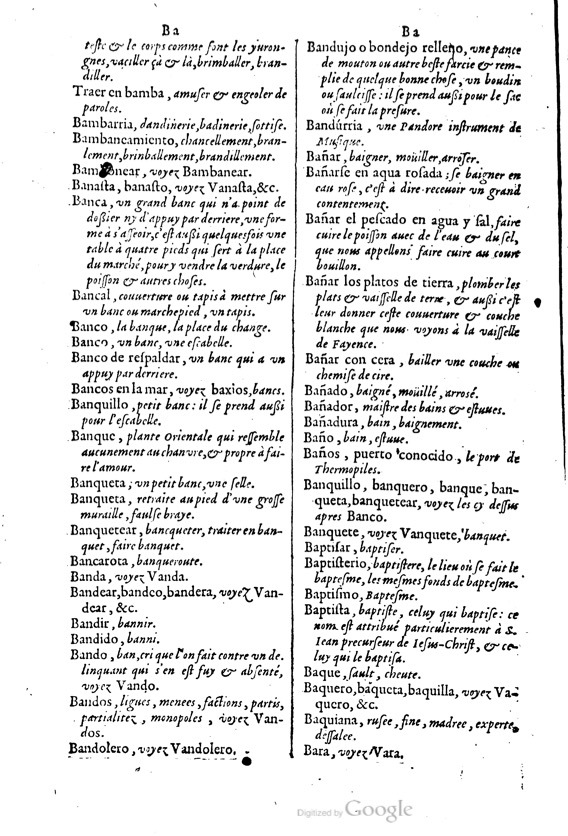 Ba
teste & le corps comme font les yuron-
gnes, vaciller çà & là, brimballer, bran-
diller.
Traer en bamba, amuser & engeoler de
paroles.
Bambarria, dandinerie, badinerie, sottise.
Bambaneamiento, chancellement, bran-
lement, brinballement, brandillement.
Bambonear, voyez Bambanear.
Banasta, banasto, voyez Vanasta, &c.
Banca, un grand banc qui n'a point de
dossier ny d'appuy par derriere, une for-
me à s'asseoir, c'est aussi quelquesfois une
table à quatre pieds qui sert à la place
du marché, pour y vendre la verdure, le
poisson & autres choses.
Bancal, couverture ou tapis à mettre sur
un banc ou marchepied, un tapis.
Banco, la banque, la place du change.
Banco, un banc, une escabelle.
Banco de respaldar, un banc qui a un
appuy par derriere.
Bancos en la mar, voyez baxios, bancs.
Banquillo, petit banc: il se prend aussi
pour l'escabelle.
Banque, plante Orientale qui ressemble
aucunement au chanvre, & propre à fai-
re l'amour.
Banqueta, un petit banc, une selle.
Banqueta, retraite au pied d'une grosse
muraille, faulse braye.
Banquetear, bancqueter, traiter en ban-
quet, faire banquet.
Bancarota, banqueroute.
Banda, voyez Vanda.
Bandear, bandeo, bandera, voyez Van-
dear, &c.
Bandir, bannir.
Bandido, banni.
Bando, ban, cri que l'on fait contre un de-
linquant qui s'en est fuy & absenté,
voyez Vando.
Bandos, ligues, menees, factions, partis,
partialitez, monopoles, voyez Van-
dos.
Bandolero, voyez Vandolero.
Ba
Bandujo o bondejo relleno, une pance
de mouton ou autre beste farcie & rem-
plie de quelque bonne chose, un boudin
ou saulcisse: il se prend aussi pour le sac
où se fait la presure.
Bandurria, une Pandore instrument de
Musique.
Bañar, baigner, moüiller, arroser.
Bañarse en agua rosada: se baigner en
eau rose, c'est à dire recevoir un grand
contentement.
Bañar el pescado en agua y sal, faire
cuire le poisson avec de l'eau & du sel,
que nous appellons faire cuire au court
bouillon.
Bañar los platos de tierra, plomber les
plats & vaisselle de terre, & aussi c'est
leur donner ceste couverture & couche
blanche que nous voyons à la vaisselle
de Fayence.
Bañar con cera, bailler une couche ou
chemise de cire.
Bañado, baigné, moüillé, arrosé.
Bañador, maistre des bains & estuves.
Bañadura, bain, baignement.
Baño, bain, estuve.
Baños, puerto conocido, le port de
Thermopiles.
Banquillo, banquero, banque, ban-
queta, banquetear, voyez les cy dessus
apres Banco.
Banquete, voyez Vanquete, banquet.
Baptisar, baptiser.
Baptisterio, baptistere, le lieu où se fait le
baptesme, les mesmes fonds de baptesme.
Baptismo, Baptesme.
Baptista, baptiste, celuy qui baptise: ce
nom est attribué particulierement à S.
Iean precurseur de Iesus-Christ, & ce-
luy qui le baptisa.
Baque, sault, cheute.
Baquero, baqueta, baquilla, voyez Va-
quero, &c.
Baquiana, rusee, fine, madree, experte,
dessalee.
Bara, voyez Vara.
Digitized by Google